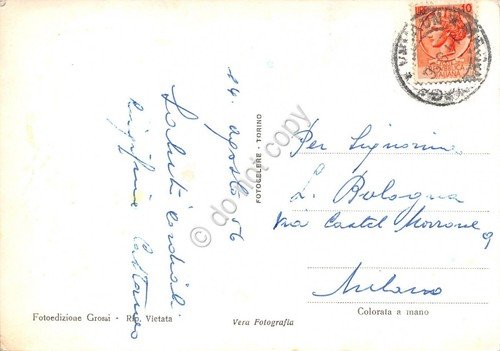 14 agosto 56
Saluti cordiali
Cattaneo
Per Signorina
L. Bologna
Via Castel Morrone 9
Milano
FOTOCELERE - TORINO
Fotoedizione Grossi - Rip. Vietata
Vera Fotografia
Colorata a mano
10
© do not copy